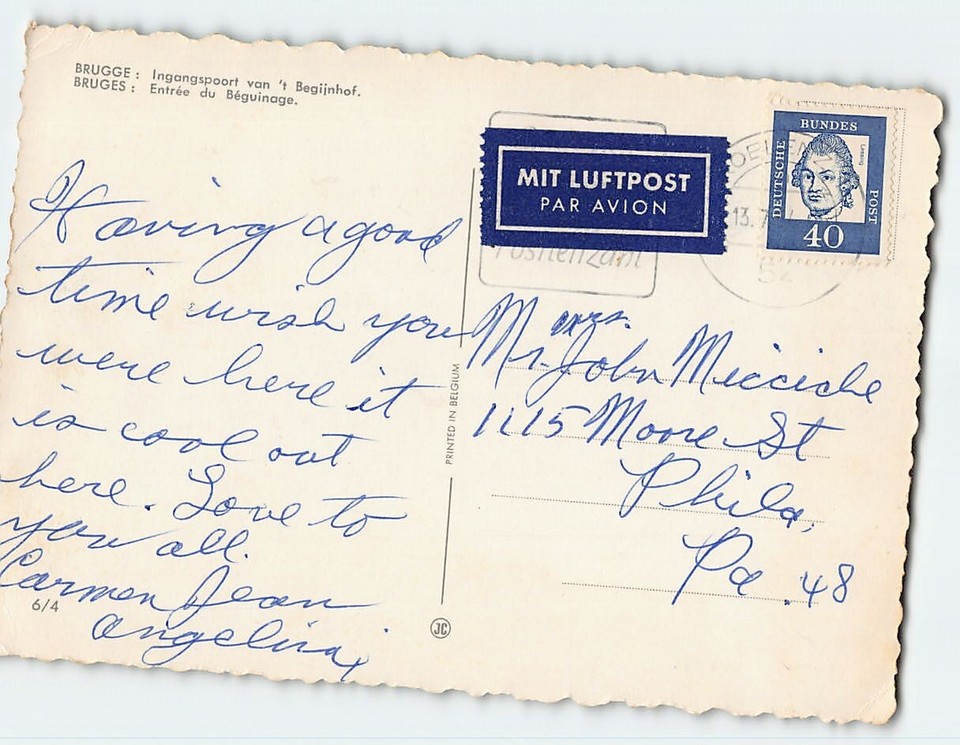 BRUGGE : Ingangspoort van 't Begijnhof.
BRUGES : Entrée du Béguinage.
Having a good
time wish you
were here it
is cool out
here. Love to
you all.
Carmen Jean
Angelina
6/4
PRINTED IN BELGIUM
JC
MIT LUFTPOST
PAR AVION
Postleitzahl
13. 7.
52
DEUTSCHE
BUNDES
POST
Lessing
40
mrs.
Mr John Micciche
1115 Moore St
Phila,
Pa .48